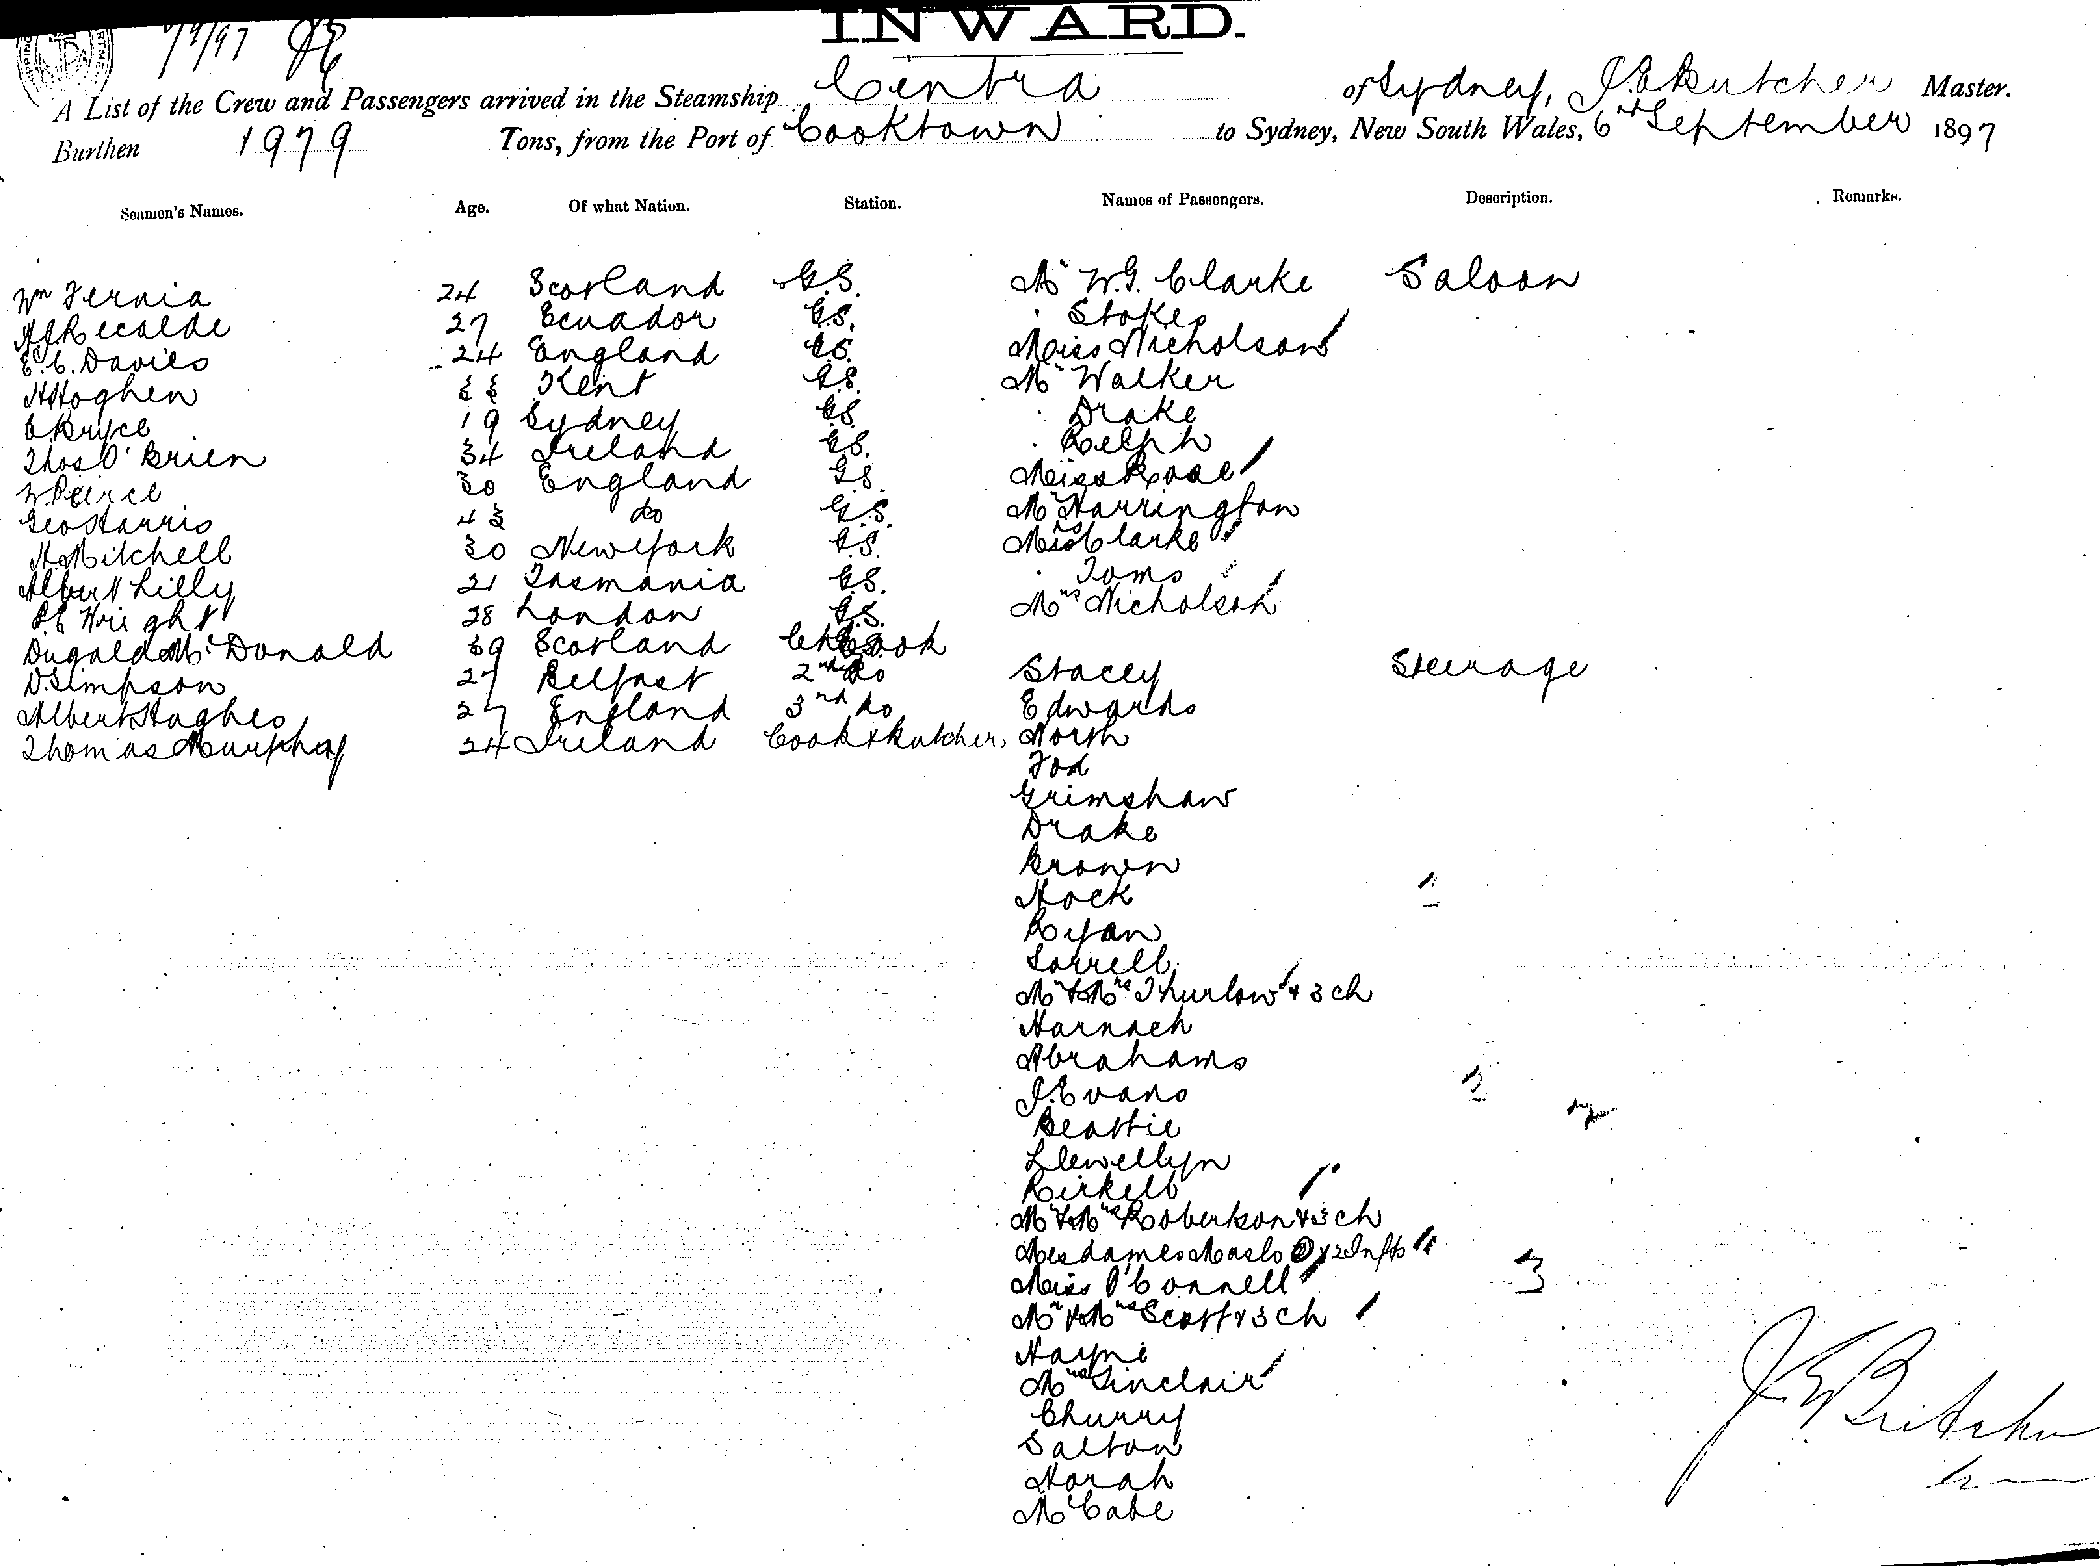 INWARD.
7/9/97
A List of the Crew and Passengers arrived in the Steamship Cintra of Sydney, J.E. Butcher Master.
Burthen 1979 Tons, from the Port of Cooktown to Sydney, New South Wales, 6th September 1897
Seamen's Names. Age. Of what Nation. Station. Names of Passengers. Description. Remarks.
Wm Fernia 24 Scotland G.S. Mr W.G. Clarke Saloon
Recalde 27 Ecuador G.S. " Stokes
E.C. Davies 24 England G.S. Miss Nicholson
Hoghen 33 Kent G.S. Mr Walker
C Bryce 19 Sydney G.S. " Drake
Thos O'Brien 34 Ireland G.S. " Relph
W Peirce 30 England G.S. Miss Rose
Geo Harris 43 do G.S. Mr Harrington
H. Mitchell 30 New York G.S. Mrs Clarke
Albert Lilly 21 Tasmania G.S. " Toms
Wright 28 London G.S. Mrs Nicholson
Dugald McDonald 39 Scotland Ch Cook
D. Simpson 27 Belfast 2nd do Stacey Steerage
Albert Hughes 27 England 3rd do Edwards
Thomas Murphy 24 Ireland Cook & Butcher North
Fox
Grimshaw
Drake
Brown
Hock
Ryan
Sorrell
Mr & Mrs Thurlow & 3 ch
Harnach
Abrahams
J. Evans
Beattie
Llewellyn
Mr & Mrs Robertson & 3 ch
Mesdames Maslo & 2 Infts
Miss O'Connell
Mr & Mrs Scott & 3 ch
Hayne
Mrs Sinclair
Churry
Salton
Horah
McCabe